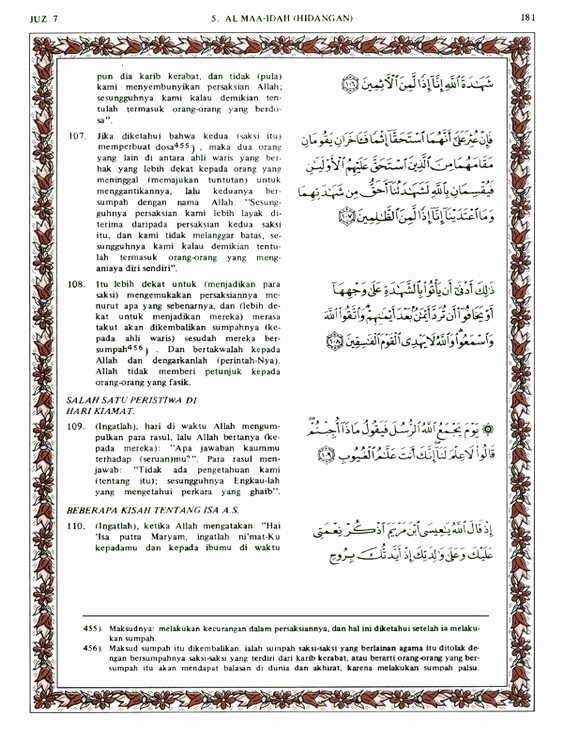 JUZ 7
5. AL MAA-IDAH (HIDANGAN)
181
pun dia karib kerabat, dan tidak (pula)
kami menyembunyikan persaksian Allah;
sesungguhnya kami kalau demikian ten-
tulah termasuk orang-orang yang berdo-
sa".
شَهَٰدَةَ ٱللَّهِ إِنَّآ إِذًا لَّمِنَ ٱلْءَاثِمِينَ ﴿١٠٦﴾
107. Jika diketahui bahwa kedua (saksi itu)
memperbuat dosa455) , maka dua orang
yang lain di antara ahli waris yang ber-
hak yang lebih dekat kepada orang yang
meninggal (memajukan tuntutan) untuk
menggantikannya, lalu keduanya ber-
sumpah dengan nama Allah: "Sesung-
guhnya persaksian kami lebih layak di-
terima daripada persaksian kedua saksi
itu, dan kami tidak melanggar batas, se-
sungguhnya kami kalau demikian tentu-
lah termasuk orang-orang yang meng-
aniaya diri sendiri".
فَإِنْ عُثِرَ عَلَىٰٓ أَنَّهُمَا ٱسْتَحَقَّآ إِثْمًا فَـَٔاخَرَانِ يَقُومَانِ
مَقَامَهُمَا مِنَ ٱلَّذِينَ ٱسْتَحَقَّ عَلَيْهِمُ ٱلْأَوْلَيَٰنِ
فَيُقْسِمَانِ بِٱللَّهِ لَشَهَٰدَتُنَآ أَحَقُّ مِن شَهَٰدَتِهِمَا
وَمَا ٱعْتَدَيْنَآ إِنَّآ إِذًا لَّمِنَ ٱلظَّٰلِمِينَ ﴿١٠٧﴾
108. Itu lebih dekat untuk (menjadikan para
saksi) mengemukakan persaksiannya me-
nurut apa yang sebenarnya, dan (lebih de-
kat untuk menjadikan mereka) merasa
takut akan dikembalikan sumpahnya (ke-
pada ahli waris) sesudah mereka ber-
sumpah456) . Dan bertakwalah kepada
Allah dan dengarkanlah (perintah-Nya).
Allah tidak memberi petunjuk kepada
orang-orang yang fasik.
ذَٰلِكَ أَدْنَىٰٓ أَن يَأْتُوا۟ بِٱلشَّهَٰدَةِ عَلَىٰ وَجْهِهَآ
أَوْ يَخَافُوٓا۟ أَن تُرَدَّ أَيْمَٰنٌۢ بَعْدَ أَيْمَٰنِهِمْ وَٱتَّقُوا۟ ٱللَّهَ
وَٱسْمَعُوا۟ وَٱللَّهُ لَا يَهْدِى ٱلْقَوْمَ ٱلْفَٰسِقِينَ ﴿١٠٨﴾
SALAH SATU PERISTIWA DI
HARI KIAMAT.
109. (Ingatlah), hari di waktu Allah mengum-
pulkan para rasul, lalu Allah bertanya (ke-
pada mereka): "Apa jawaban kaummu
terhadap (seruan)mu?". Para rasul men-
jawab: "Tidak ada pengetahuan kami
(tentang itu); sesungguhnya Engkau-lah
yang mengetahui perkara yang ghaib".
۞ يَوْمَ يَجْمَعُ ٱللَّهُ ٱلرُّسُلَ فَيَقُولُ مَاذَآ أُجِبْتُمْ
قَالُوا۟ لَا عِلْمَ لَنَآ إِنَّكَ أَنتَ عَلَّٰمُ ٱلْغُيُوبِ ﴿١٠٩﴾
BEBERAPA KISAH TENTANG ISA A.S.
110. (Ingatlah), ketika Allah mengatakan: "Hai
'Isa putra Maryam, ingatlah ni'mat-Ku
kepadamu dan kepada ibumu di waktu
إِذْ قَالَ ٱللَّهُ يَٰعِيسَى ٱبْنَ مَرْيَمَ ٱذْكُرْ نِعْمَتِى
عَلَيْكَ وَعَلَىٰ وَٰلِدَتِكَ إِذْ أَيَّدتُّكَ بِرُوحِ
455). Maksudnya: melakukan kecurangan dalam persaksiannya, dan hal ini diketahui setelah ia melaku-
kan sumpah.
456). Maksud sumpah itu dikembalikan, ialah sumpah saksi-saksi yang berlainan agama itu ditolak de-
ngan bersumpahnya saksi-saksi yang terdiri dari karib kerabat, atau berarti orang-orang yang ber-
sumpah itu akan mendapat balasan di dunia dan akhirat, karena melakukan sumpah palsu.